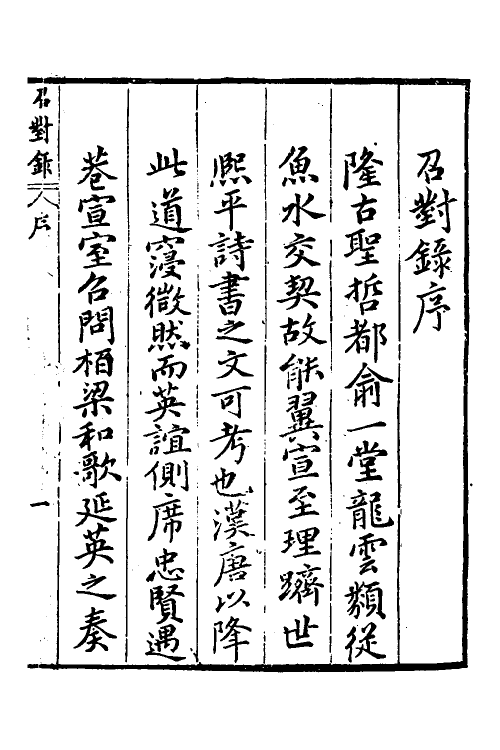 召對錄序
隆古聖哲都俞一堂龍雲類從
魚水交契故能翼宣至理躋世
熈平詩書之文可考也漢唐以降
此道寖微然而英誼側席忠賢遇
巷宣室召問栢梁和歌延英之奏
召對錄
序
一